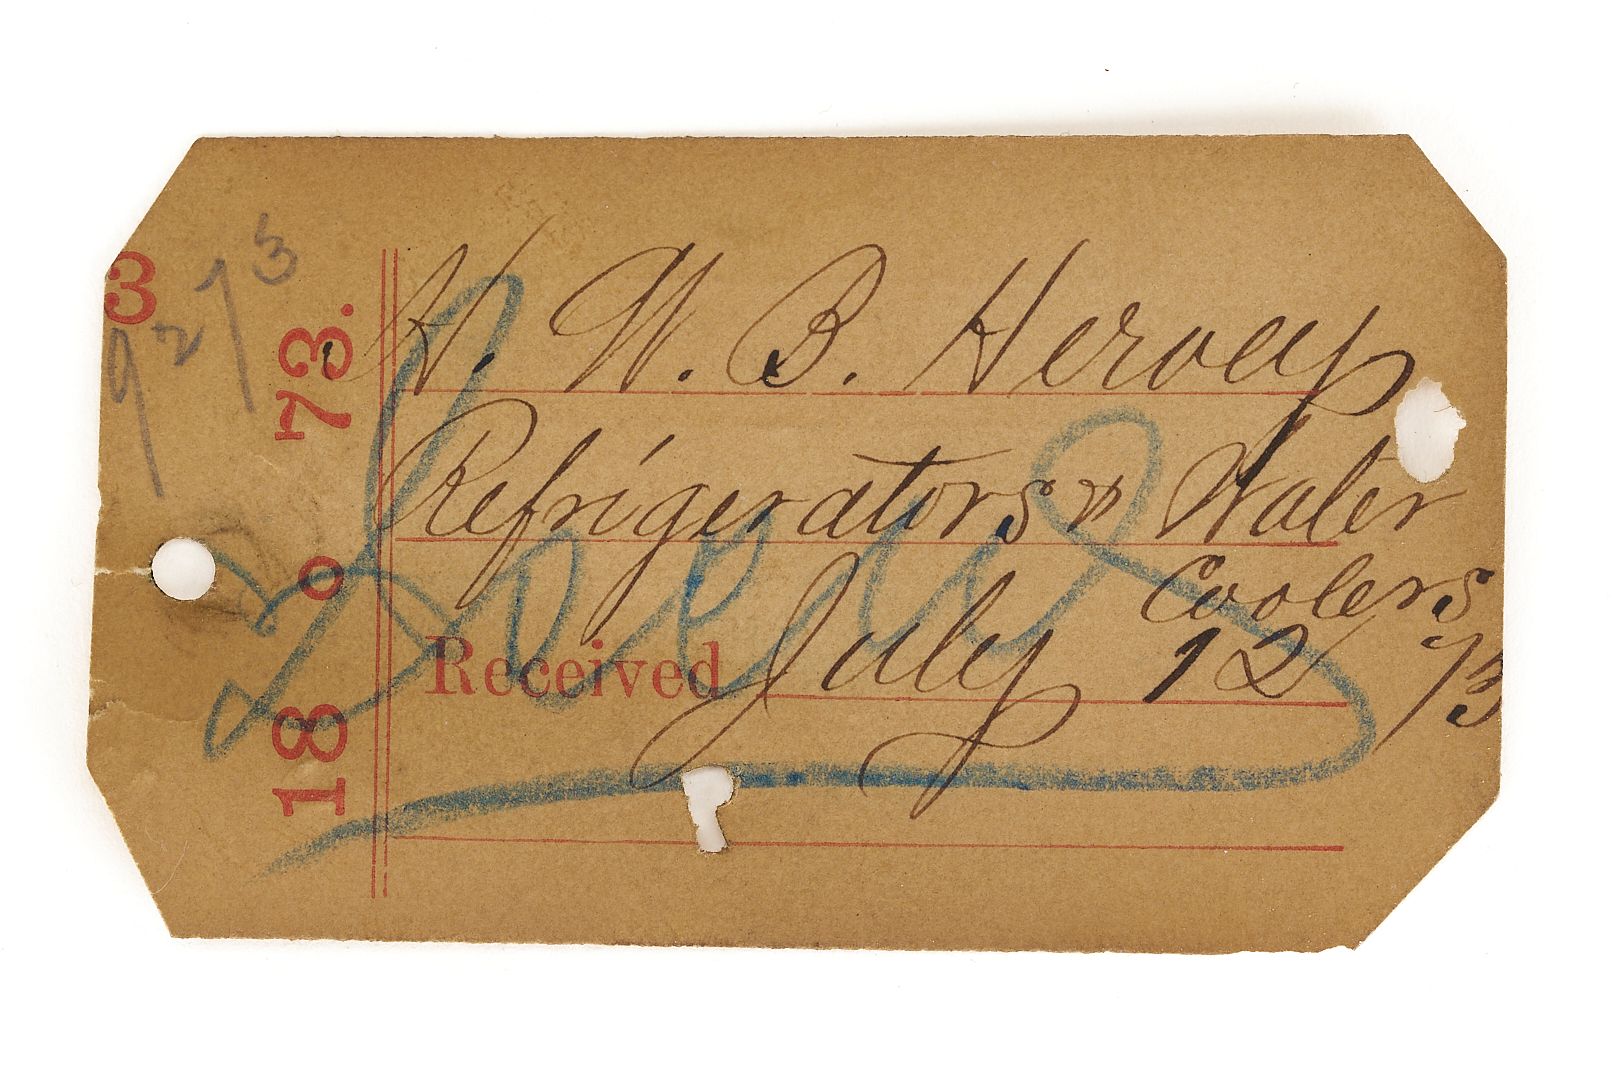 3
9273
18 73.
H. W. B. Hervey
Refrigerators & Water
Coolers
Received July 12/73